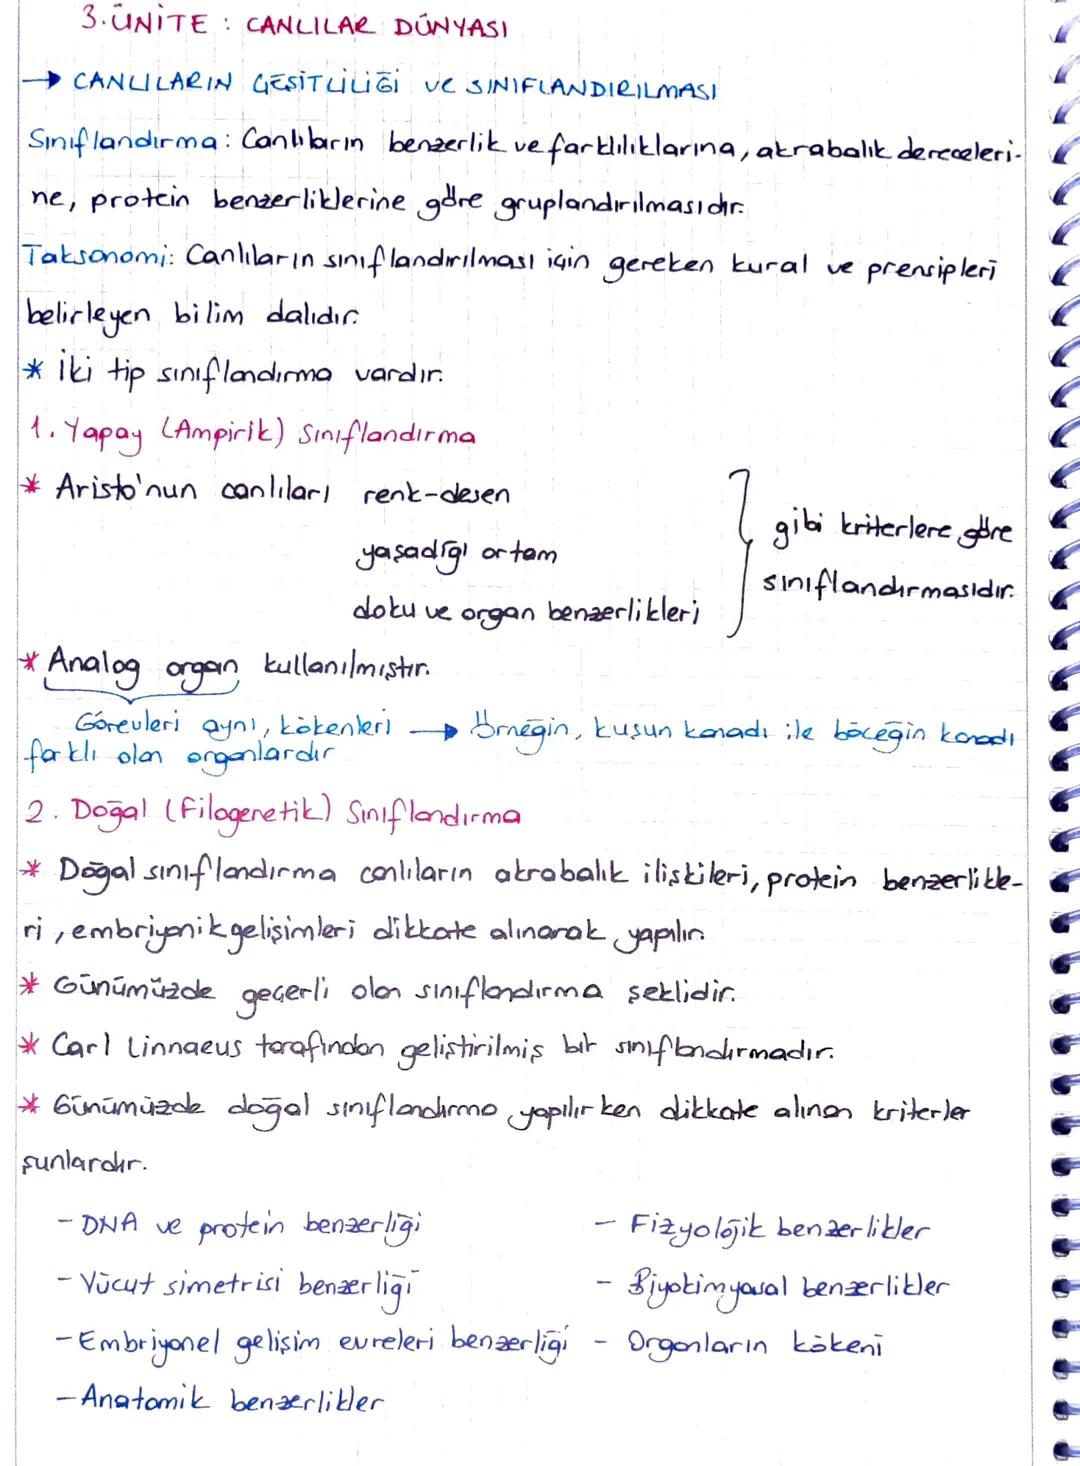 3. ÜNİTE : CANLILAR DÜNYASI
→ CANLILARIN ÇEŞİTLİLİĞİ ve SINIFLANDIRILMASI
Sınıflandırma: Canlıların benzerlik ve farklılıklarına, akrabalık dereceleri-
ne, protein benzerliklerine göre gruplandırılmasıdır.
Taksonomi: Canlıların sınıflandırılması için gereken kural ve prensipleri
belirleyen bilim dalıdır.
* İki tip sınıflandırma vardır.
1. Yapay (Ampirik) Sınıflandırma
* Aristo'nun canlıları renk-desen
yaşadığı ortam
doku ve organ benzerlikleri
gibi kriterlere göre
sınıflandırmasıdır.
* Analog organ kullanılmıştır.
Görevleri aynı, kökenleri → Örneğin, kuşun kanadı ile böceğin kanadı
farklı olan organlardır
2. Doğal (Filogenetik) Sınıflandırma
* Doğal sınıflandırma canlıların akrabalık ilişkileri, protein benzerlikle-
ri, embriyonik gelişimleri dikkate alınarak yapılır.
* Günümüzde geçerli olan sınıflandırma şeklidir.
* Carl Linnaeus tarafından geliştirilmiş bir sınıflandırmadır.
* Günümüzde doğal sınıflandırma yapılırken dikkate alınan kriterler
şunlardır.
- DNA ve protein benzerliği - Fizyolojik benzerlikler
- Vücut simetrisi benzerliği - Biyokimyasal benzerlikler
- Embriyonel gelişim evreleri benzerliği - Organların kökeni
- Anatomik benzerlikler